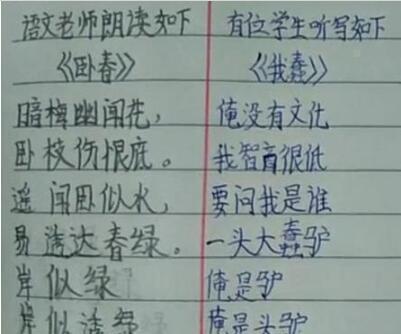 语文老师朗读如下
《卧春》
暗梅幽闻花，
卧枝伤恨底。
遥闻卧似水，
易透达春绿。
岸似绿
岸似透绿
有位学生听写如下
《我蠢》
俺没有文化
我智商很低
要问我是谁
一头大蠢驴
俺是驴
俺是头驴